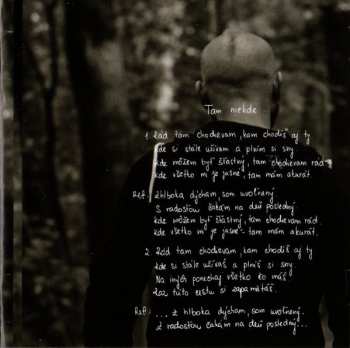 Tam niekde
1. Rád tam chodievam, kam chodíš aj ty
kde si stále užívam a plním si sny
kde môžem byť šťastný, tam chodievam rád
kde všetko mi je jasné, tam mám akurát.
Ref: Zhlboka dýcham som uvoľnený
S radosťou čakám na deň posledný
kde môžem byť šťastný, tam chodievam rád
kde všetko mi je jasné - tam mám akurát.
2. Rád tam chodievam, kam chodíš aj ty
kde si stále užívaš a plníš si sny
Na iných ponechaj všetko čo máš
Raz túto cestu si zapamätáš.
Ref: ... Z hlboka dýcham, som uvoľnený..
Z radosťou čakám na deň posledný...